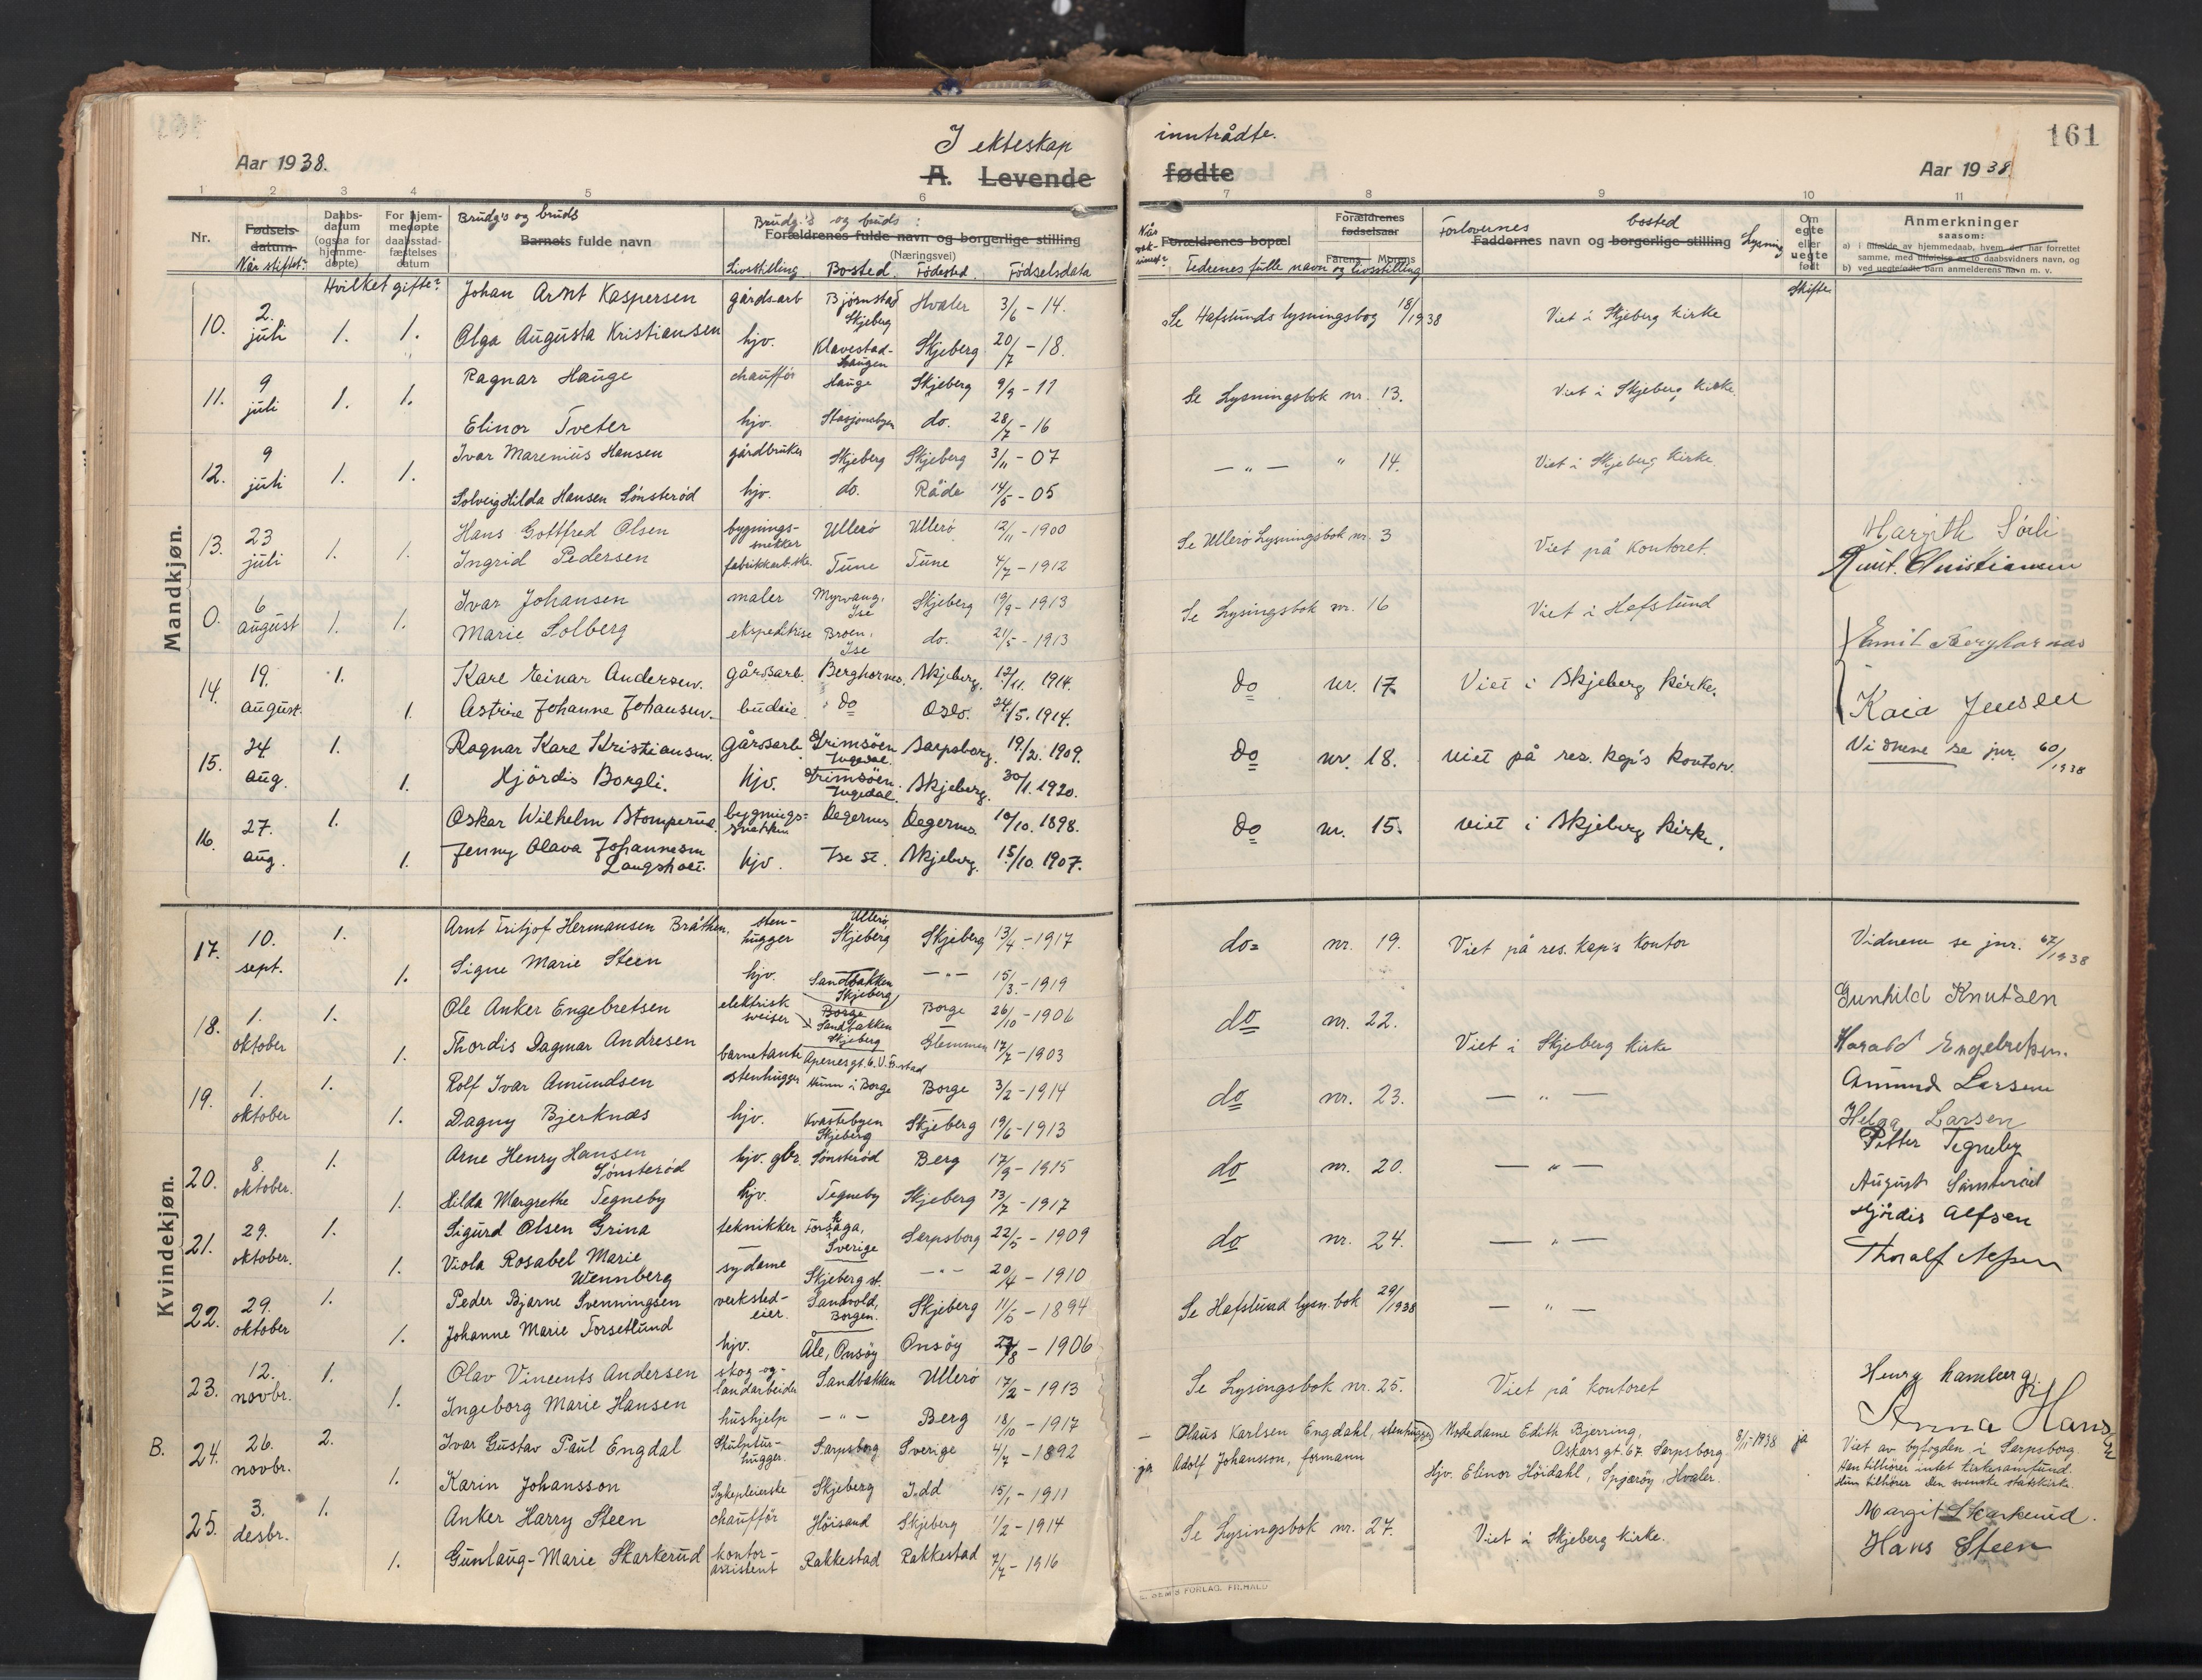 161
I ekteskap inntrådte.
Aar 1938.
A. Levende fødte
Aar 1938.
1 2 3 4 5 6 7 8 9 10 11
Nr.
Fødsels-datum
Når stiftet?
Daabs-datum (ogsaa for hjemme-døpte)
For hjem-medøpte daabsstad-fæstelses datum
Hvilket gifte?
Brudg's og bruds
Barnets fulde navn
Brudg.'s og bruds:
Forældrenes fulde navn og borgerlige stilling
(Næringsvei)
Livsstilling Bosted Fødested Fødselsdata
Forældrenes bopæl
Forældrenes fødselsaar
Farens Morens
Fedrenes fulle navn og livsstilling
Forlovernes bosted
Faddernes navn og borgerlige stilling
Lysning
Om egte eller uegte født
Skifte
Anmerkninger
saasom:
a) i tilfælde av hjemmedaab, hvem der har forrettet samme, med tilføielse av to daabsvidners navn, og
b) ved uegtefødte barn anmelderens navn m. v.
Mandkjøn.
10. 2. juli 1. 1. Johan Arnt Kaspersen gårdsarb Bjørnstad Skjeberg Hvaler 3/6 - 14. Se Hafslunds lysningsbog 18/1938 Viet i Skjeberg kirke
Olga Augusta Kristiansen hjv. Klavestad-haugen Skjeberg 20/7 - 18.
11. 9 juli 1. 1. Ragnar Hauge chauffør Hauge Skjeberg 9/9 - 11 Se Lysningsbok nr. 13. Viet i Skjeberg kirke
Elinor Tveter hjv. Stasjonsbyen do. 28/7 - 16
12. 9 juli 1. 1. Ivar Marenius Hansen gårdbruker Skjeberg Skjeberg 3/11 - 07 — " — " 14. Viet i Skjeberg kirke
Solveig Hilda Hansen Sønsterød hjv. do. Råde 14/5 - 05
13. 23 juli 1. 1. Hans Gottfred Olsen bygnings-snekker Ullerø Ullerø 12/11 - 1900 Se Ullerø Lysningsbok nr. 3 Viet på kontoret. Margith Sørli
Ingrid Pedersen fabrikkarb.ske. Tune Tune 4/7 - 1912 Knut. Christiansen
0. 6 august 1. 1. Ivar Johansen maler Myrvang, Ise Skjeberg 19/9 - 1913 Se Lysingsbok nr. 16 Viet i Hafslund
Marie Solberg ekspeditrise Broen, Ise do. 21/5 - 1913
14. 19. august. 1. Kare Einar Andersen. gårdsarb. Berghornes. Skjeberg. 12/11. 1914. do nr. 17. Viet i Skjeberg kirke. Emil Berghornes
1. Astrid Johanne Johansen. budeie. do Oslo. 24/5. 1914. Kaia Jensen
15. 24. aug. 1. Ragnar Kare Kristiansen. Gårdsarb Grimsöen Ingedal. Sarpsborg. 19/2. 1909. do nr. 18. viet på res. kap's kontor. Vidnene se jnr. 60/1938
1. Hjördis Borgli. hjv. Grimsöen. Ingedal. Skjeberg. 30/1. 1920.
16. 27. aug. 1. Oskar Wilhelm Stomperud. bygnings-snekker Degernes Degernes. 10/10. 1898. do nr. 15. viet i Skjeberg kirke.
1. Jenny Olava Johannesen Langsholt. hjv. Ise st. Skjeberg. 15/10. 1907.
Kvindekjøn.
17. 10. sept. 1. Arnt Fritjof Hermansen Bråthen. sten-hugger Ullerø, Skjeberg Skjeberg 13/4. - 1917 do= nr. 19. Viet på res. kap's kontor Vidnene se jnr. 67/1938
1. Signe Marie Steen hjv. Sandbakken Skjeberg — " — 15/3. - 1919
18. 1. oktober 1. Ole Anker Engebretsen elektrisk sveiser Borge Sandbakken Skjeberg Borge 26/10 - 1906 do nr. 22. Viet i Skjeberg kirke Gunhild Knutsen
1. Thordis Dagmar Andresen barnetante Apenesgt. 6. V. F.stad Glemmen 17/7 - 1903 Harald Engebretsen.
19. 1. oktober 1. Rolf Ivar Amundsen stenhugger Hunn i Borge Borge 3/2 - 1914 do nr. 23. — " — Amund Larsen
1. Dagny Bjerknæs hjv. Kvastebyen Skjeberg Skjeberg 19/6 - 1913 Helga Larsen
20. 8. oktober. 1. Arne Henry Hansen Sønsterød hjv. gbr. Sønsterød Berg 17/9 - 1915 do nr. 20. — " — Petter Tegneby
1. Hilda Margrethe Tegneby hjv. Tegneby Skjeberg 13/7 - 1917 August Sønsterød
21. 29. oktober. 1. Sigurd Olsen Grina teknikker Forshaga, Sverige Sarpsborg 22/5 - 1909 do nr. 24. — " — Hjördis Alfsen
1. Viola Rosabel Marie Wennberg sydame Skjeberg st. — " — 20/4 - 1910 Thoralf
22. 29. oktober 1. Peder Bjarne Svenningsen verksted-eier. Sandvold, Borgen. Skjeberg 11/5 - 1894 Se Hafslund lysn. bok 29/1938 — " —
1. Johanne Marie Torsetlund hjv. Åle, Onsøy Onsøy /8 - 1906
23. 12. novbr. 1. Olav Vincents Andersen skog-og-landarbeider Sandbakken Ullerø 17/2 - 1913 Se Lysingsbok nr. 25. Viet på kontoret Henry Ramberg
1. Ingeborg Marie Hansen hushjelp — " — Berg 18/10 - 1917 Anna Hansen
B. 24. 26. novbr. 2. Ivar Gustav Paul Engdal Skulptur-hugger. Sarpsborg Sverige 4/7 - 1892 — Olaus Karlsen Engdahl, stenhugger Motedame Edith Bjerring, Oskars gt. 67 Sarpsborg. 8/11 1938 ja Viet av byfogden i Sarpsborg. Han tilhører intet kirkesamfund. Hun tilhører den svenske statskirke.
1. Karin Johansson Sykepleierske Skjeberg Idd 15/1 - 1911 ja Adolf Johansson, formann Hjv. Elinor Höidahl, Spjærøy, Hvaler.
25. 3. desbr. 1. Anker Harry Steen chauffør Höisand Skjeberg 1/2 - 1914 Se Lysingsbok nr. 27. Viet i Skjeberg kirke. Margit Skarkerud.
1. Gunlaug-Marie Skarkerud kontor-assistent Rakkestad Rakkestad 7/7 - 1916 Hans Steen
E. SEM'S FORLAG. FR.HALD